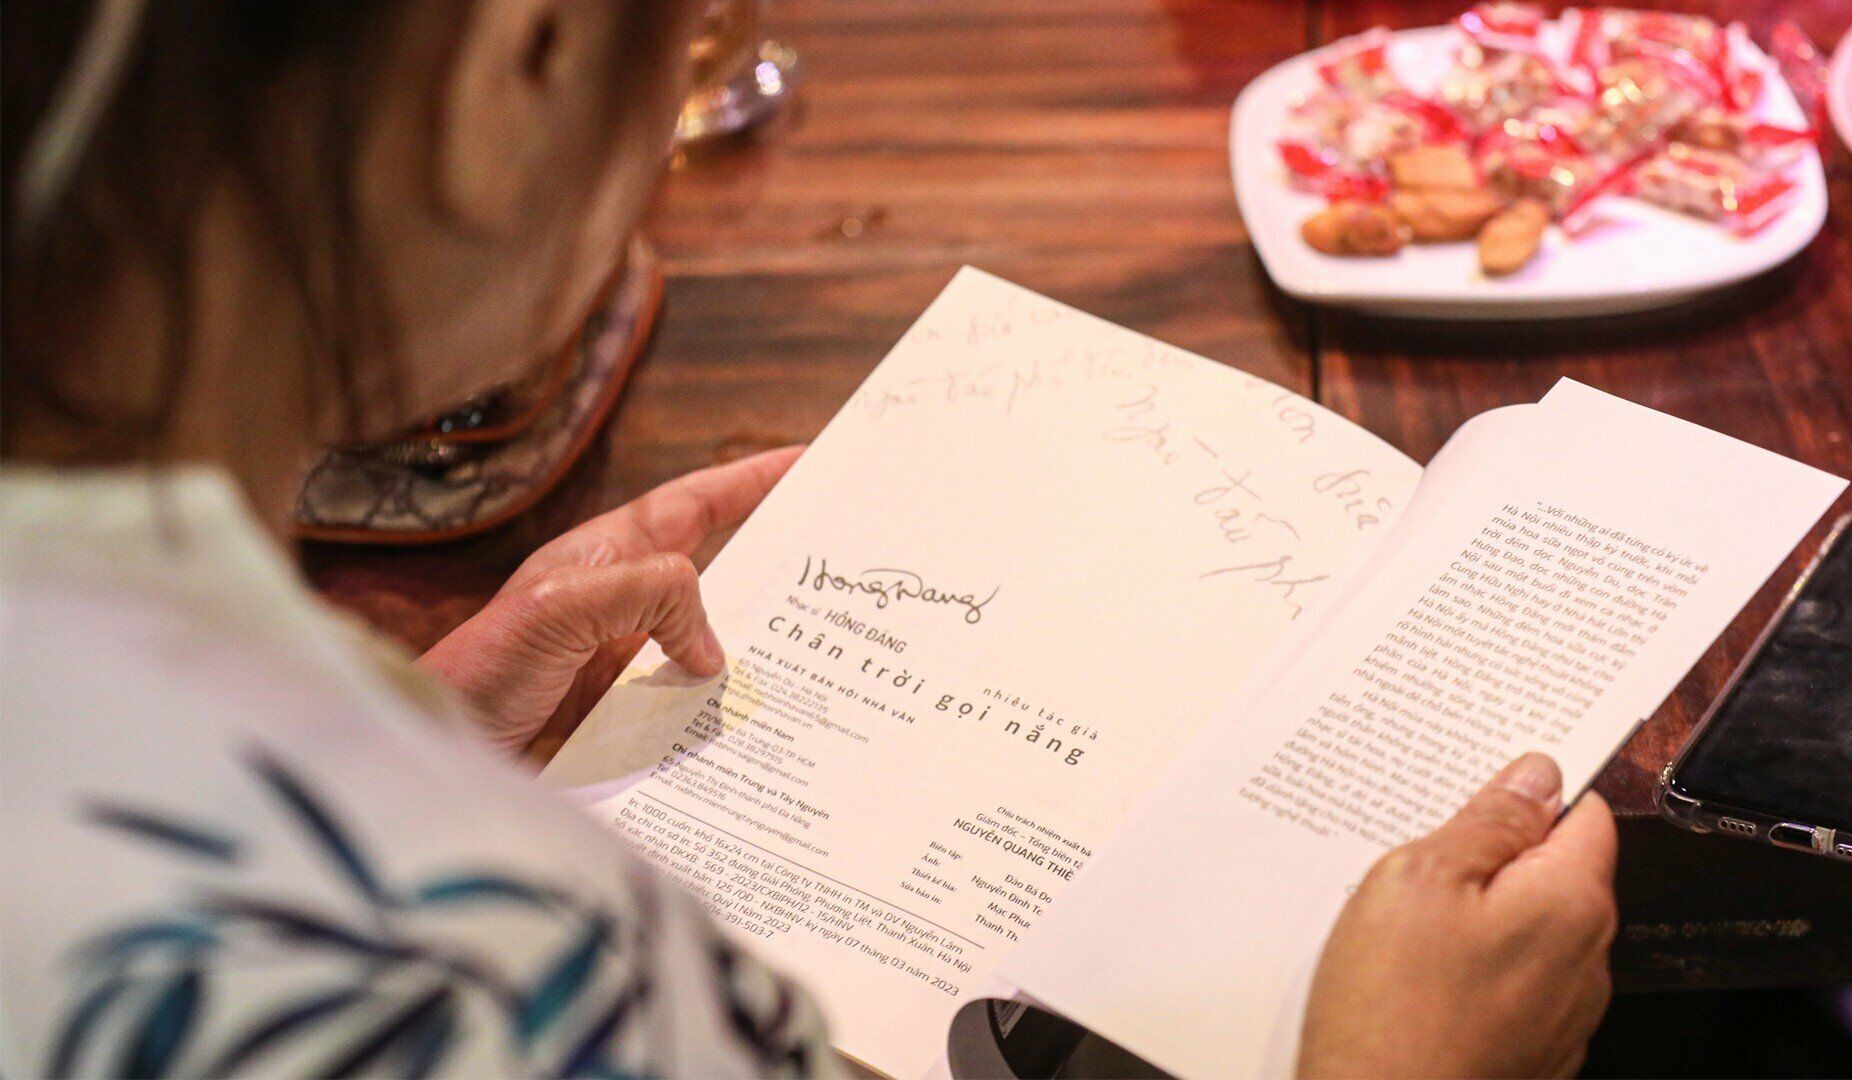 Ngào
đầu
HongDang
Nhạc sĩ HỒNG ĐĂNG
Chân trời gọi nắng
nhiều tác giả
NHÀ XUẤT BẢN HỘI NHÀ VĂN
65 Nguyễn Du - Hà Nội
Tel & Fax: 024.38222135
E-mail: nxbhoinhavan65@gmail.com
https://nxbhoinhavan.vn
Chi nhánh miền Nam
371/16 Hai Bà Trưng-Q3-TP HCM
Tel & Fax: 028.38297915
Email: nxbhnv.saigon@gmail.com
Chi nhánh miền Trung và Tây Nguyên
65 Nguyễn Thị Định-thành phố Đà Nẵng
Tel: 02363.849516
Email: nxbhnv.mientrungtaynguyen@gmail.com
Chịu trách nhiệm xuất bả
Giám đốc – Tổng biên tậ
NGUYỄN QUANG THIỀ
Biên tập: Đào Bá Đo
Ảnh: Nguyễn Đình To
Thiết kế bìa: Mạc Phươ
Sửa bản in: Thanh Th
In: 1000 cuốn; khổ 16x24 cm tại Công ty TNHH in TM và DV Nguyễn Lâm
Địa chỉ cơ sở in: Số 352 đường Giải Phóng, Phương Liệt, Thanh Xuân, Hà Nội
Số xác nhận ĐKXB: 569 - 2023/CXBIPH/12 - 15/HNV
quyết định xuất bản: 125 /QĐ - NXBHNV ký ngày 07 tháng 03 năm 2023
lưu chiểu: Quý I Năm 2023
04-391-503-7
"...Với những ai đã từng có ký ức về
Hà Nội nhiều thập kỷ trước, khi mỗi
mùa hoa sữa ngọt vô cùng trên vòm
trời đêm dọc Nguyễn Du, dọc Trần
Hưng Đạo, dọc những con đường Hà
Nội sau một buổi đi xem ca nhạc ở
Cung Hữu Nghị hay ở Nhà hát Lớn thì
âm nhạc Hồng Đăng mới thấm đẫm
làm sao. Những đêm hoa sữa cực kỳ
Hà Nội ấy mà Hồng Đăng như tạc cho
Hà Nội một tuyệt tác nghệ thuật không
rõ hình hài nhưng có sức sống vô cùng
mãnh liệt. Hồng Đăng trở thành một
phần của Hà Nội, ngay cả khi ông
khiêm nhường sống trong một căn
nhà ngoài đê chỗ bến Hồng Hà.
Hà Nội mùa này không có
tiễn ông, nhưng trong ký ức
người thân không quên hình ảnh
nhạc sĩ tài hoa, nụ cười đôn
lãm và hóm hỉnh. Mai
đường Hà Nội vào đêm
Hồng Đăng, ở đó sẽ được
sữa, loài hoa mà
đã dành tặng cho Hà Nội
tượng nghệ thuật."